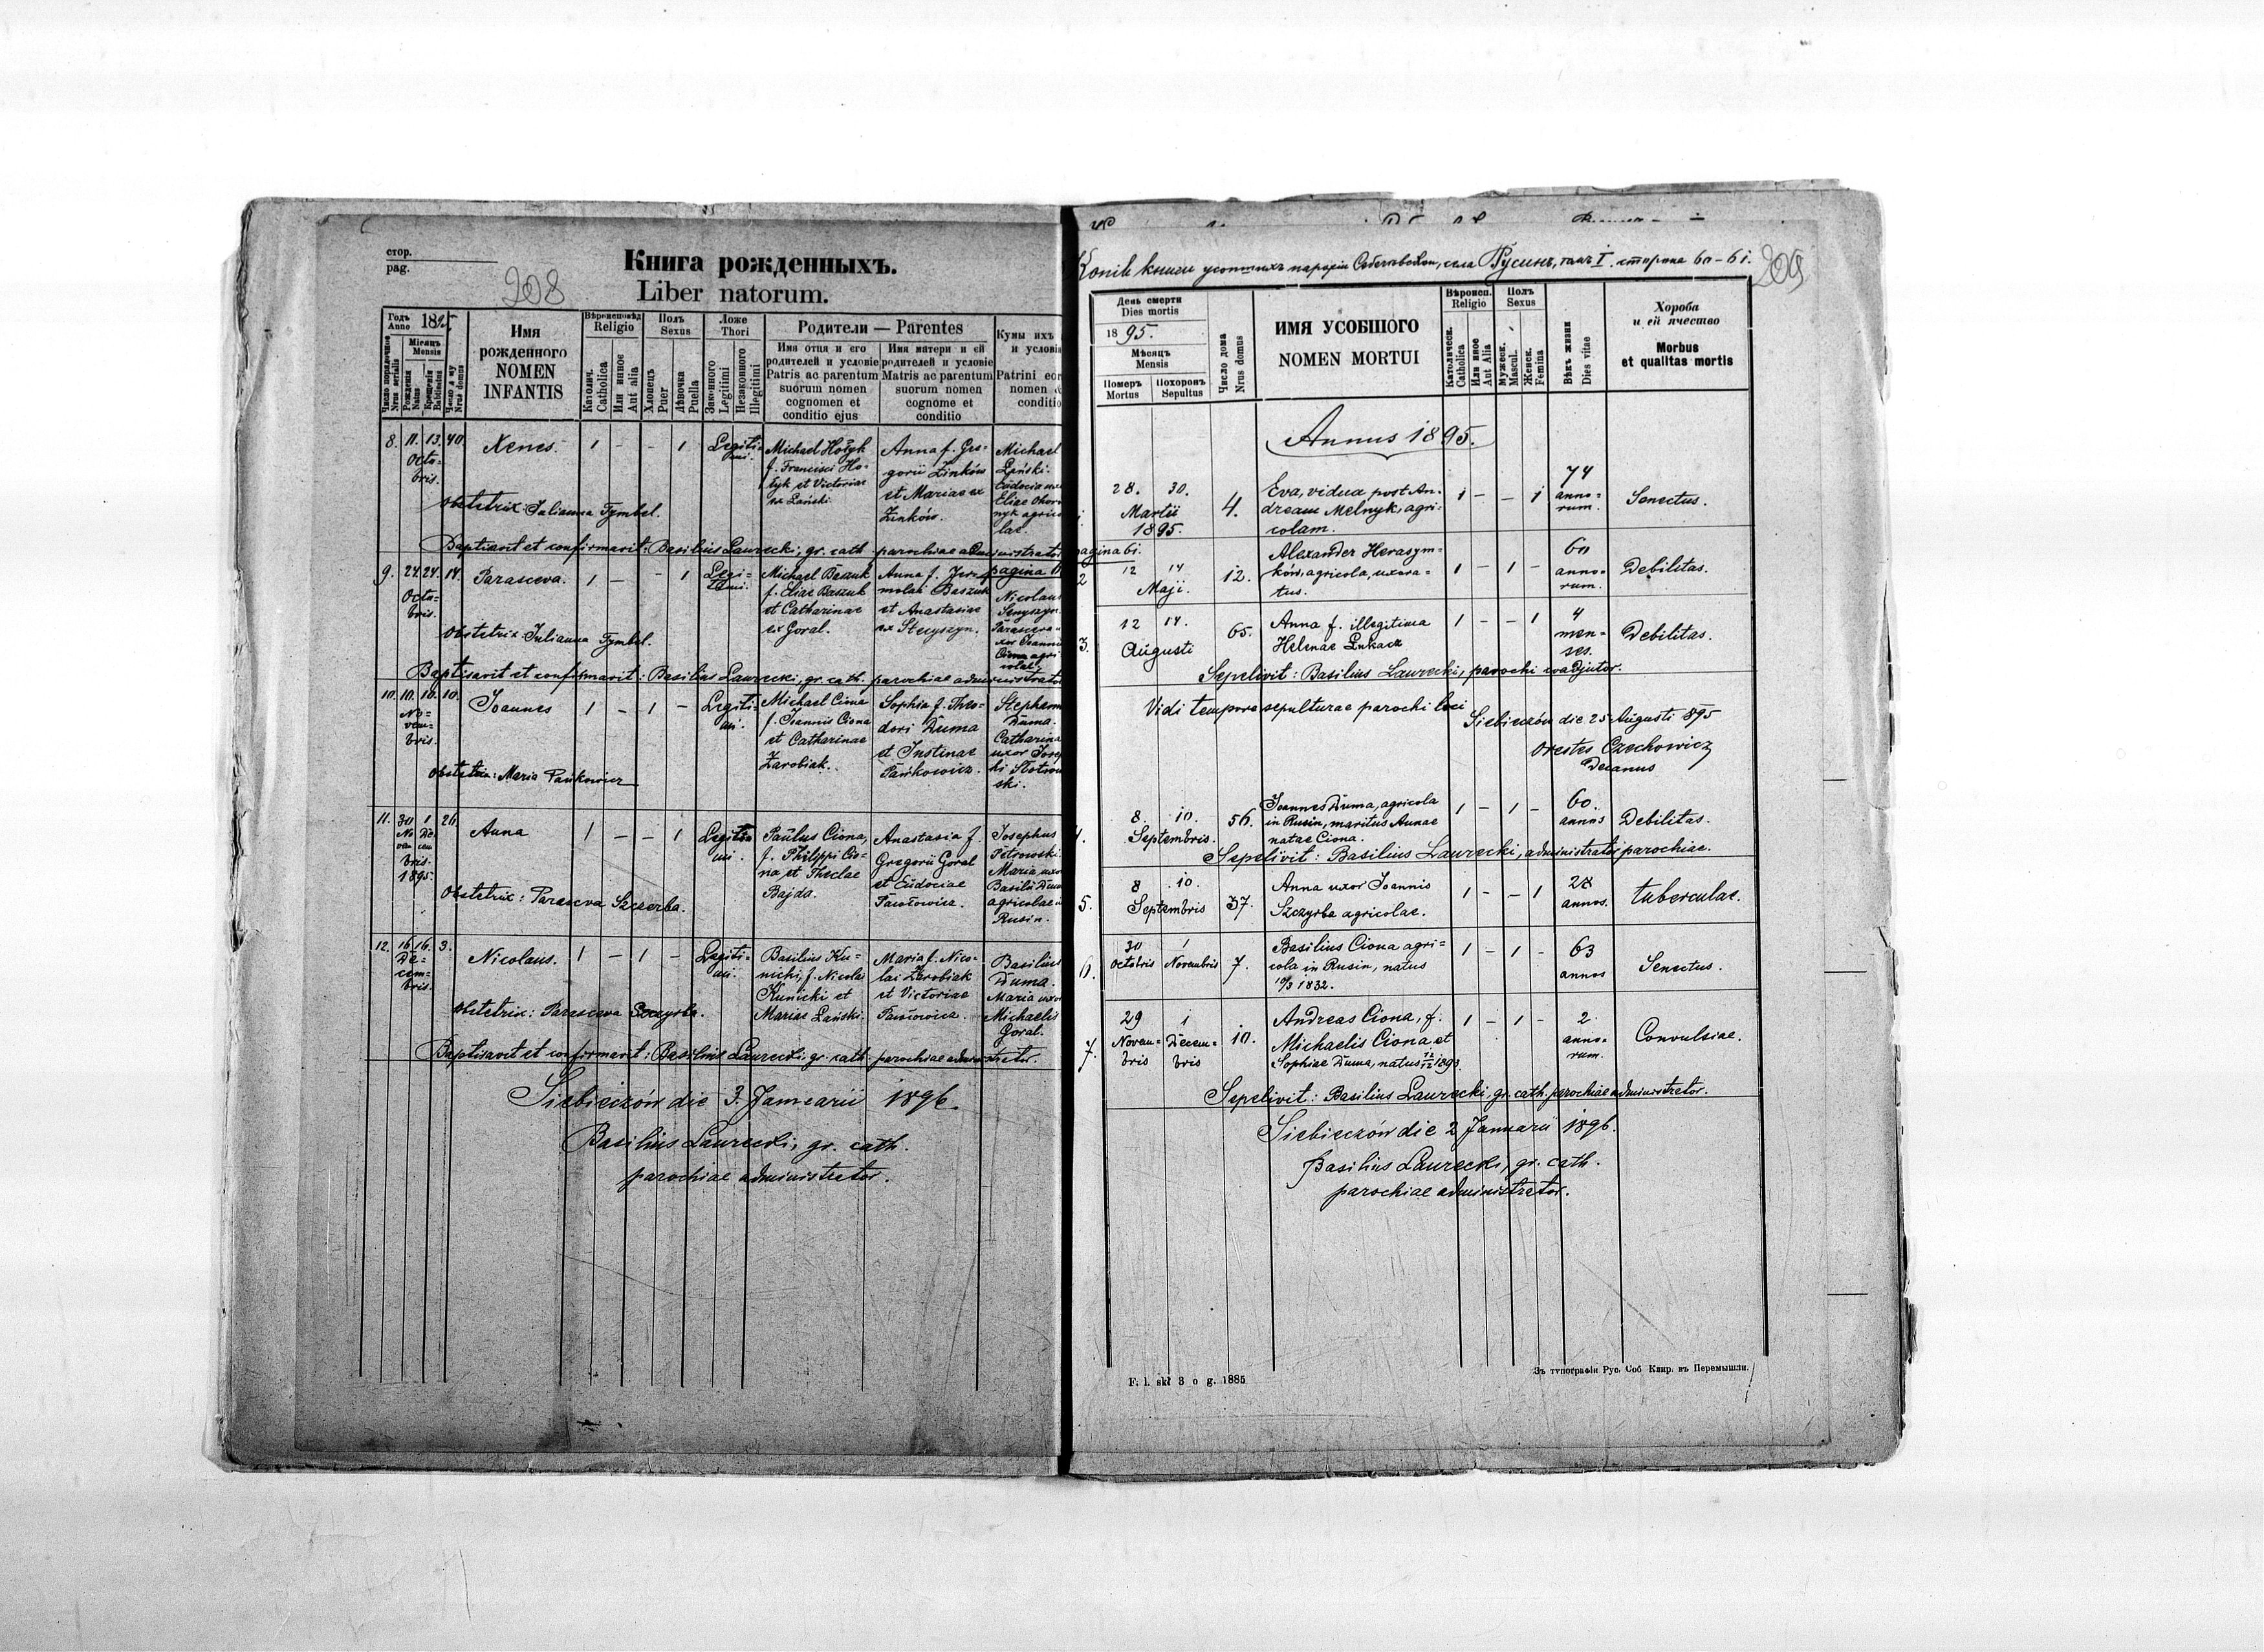 стор.
pag.
208
Книга рожденныхъ.
Liber natorum.
Годъ
Anno 1895
Мѣсяць
Mensis
Число порядочное
Nrus serialis
Рожденія
Natus
Крещенія
Nrus domus
Имя
рожденного
NOMEN
INFANTIS
Вѣроисповѣд
Religio
Католич.
Catholica
Или иное
Aut alia
Полъ
Sexus
Хлопець
Puer
Дѣвочка
Puella
Ложе
Thori
Законного
Legitimi
Незаконного
Illegitimi
Родители — Parentes
Имя отця и его
родителей и условіе
Patris ac parentum
suorum nomen
cognomen et
conditio ejus
Имя матери и ей
родителей и условіе
Matris ac parentum
suorum nomen
cognome et
conditio
Кумы ихъ
и условіе
Patrini eor
nomen &
conditio
8. 11. 13. 40.
Octo-
bris.
Xenes. 1 - - 1 Legiti-
mi.
Michael Hołyk
f. Francisci Ho-
łyk et Victoriae
ex Lański.
Anna f. Gre-
gorii Zinków
et Mariae ex
Zinków.
Michael
Lański.
Eudocia uxor
Eliae
agrico
lae
Obstetrix: Julianna Tymbel.
Baptisavit et confirmavit: Basilius Laurecki, gr. cath. parochiae administrator
pagina
9. 24. 24. 14.
Octo-
bris.
Parasceva. 1 — - 1 Legi-
timi.
Michael Baszuk
f. Eliae Baszuk
et Catharinae
ex Goral.
Anna f. Jer-
molai Baszuk
et Anastasiae
ex Stecyszyn.
Nicolaus
Senyszyn.
Parasceva
uxor Joannis
Ciona agri
colae.
Obstetrix: Julianna Tymbel.
Baptisavit et confirmavit: Basilius Laurecki, gr. cath. parochiae administrator
10. 10. 10. 10.
No-
vem-
bris.
Joannes 1 - 1 - Legiti-
mi.
Michael Ciona
f. Joannis Ciona
et Catharinae
Zarobiak.
Sophia f. Theo-
dori Duma
et Justinae
Pańkowicz.
Stephan
Duma.
Catharina
uxor Jose
phi
ski.
Obstetrix: Maria Pańkowicz
11. 30 1 26.
No De
vem cem
bris.
1895.
Anna 1 — - 1 Legiti-
mi.
Paulus Ciona,
f. Philippi Cio-
na et Theclae
Bajda.
Anastasia f.
Gregorii Goral
et Eudociae
Pawłowicz.
Josephus
Petrowski.
Maria uxor
Basilii Dum
agricolae in
Rusin.
Obstetrix: Parasceva Szczerba.
12. 16 16. 3.
De-
cem-
bris.
Nicolaus. 1 — 1 - Legiti-
mi.
Basilius Ku-
nicki, f. Nicolai
Kunicki et
Mariae Lański.
Maria f. Nico-
lai Zarobiak
et Victoriae
Pawłowicz.
Basilius
Duma.
Maria uxor
Michaelis
Goral.
Obstetrix: Parasceva Szczyrba.
Baptisavit et confirmavit: Basilius Laurecki gr. cath. parochiae administrator.
Siebieczów die 3. Januarii 1896.
Basilius Laurecki, gr. cath.
parochiae administrator.
Копія книги усопшихъ парохіи Себечевской, села Русинъ, томъ I. сторона 60-61.
209
День смерти
Dies mortis
1895.
Мѣсяцъ
Mensis
Померъ
Mortus
Похоронъ
Sepultus
Число дома
Nrus domus
ИМЯ УСОБШОГО
NOMEN MORTUI
Вѣроисп.
Religio
Католическ.
Catholica
Или иное
Aut Alia
Полъ
Sexus
Мужеск.
Mascul.
Женск.
Femina
Вѣкъ жизни
Dies vitae
Хороба
и ей ячество
Morbus
et qualitas mortis
Annus 1895.
28. 30.
Martii
1895.
4.
Eva, vidua post An-
dream Melnyk, agri-
colam.
1 - - 1
74
anno-
rum.
Senectus.
pagina 61.
2 12 14
Maji.
12.
Alexander Herasym-
ków, agricola, uxora-
tus.
1 - 1 -
60
anno-
rum.
Debilitas.
3. 12 14.
Augusti
65.
Anna f. illegitima
Helenae Lukacz
1 - - 1
4
men-
ses.
Debilitas.
Sepelivit: Basilius Laurecki, parochi coadjutor.
Vidi tempore sepulturae parochi loci
Siebieczów die 25 Augusti 895
Orestes Czechowicz
Decanus
4. 8. 10.
Septembris.
56.
Joannes Duma, agricola
in Rusin, maritus Annae
natae Ciona.
1 - 1 -
60.
annos
Debilitas.
Sepelivit: Basilius Laurecki, administrator parochiae.
5. 8 10.
Septembris
37.
Anna uxor Joannis
Szczyrba agricolae.
1 - - 1
28
annos.
tuberculae.
6. 30 1
Octobris Novembris
7.
Basilius Ciona agri-
cola in Rusin, natus
10/3 1832.
1 - 1 -
63
annos
Senectus.
7. 29 1
Novem- Decem-
bris bris
10.
Andreas Ciona, f.
Michaelis Ciona et
Sophiae Duma, natus 12/12 1893
1 - 1 -
2.
anno-
rum.
Convulsiae.
Sepelivit: Basilius Laurecki, gr. cath. parochiae administrator.
Siebieczów die 2 Januarii 1896.
Basilius Laurecki, gr. cath.
parochiae administrator.
F. l. skł 3 o g. 1885
Зъ типографіи Рус. Соб Клир. въ Перемышли.